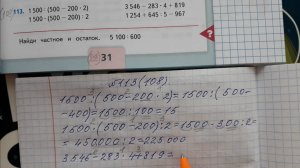 113.
1 500 : (500 − 200 · 2)
1 500 · (500 − 200) : 2
3 546 − 283 · 4 + 819
1 254 + 645 : 5 − 967
Найди частное и остаток.
5 100 : 600
?
31
№113 (108)
1500 : (500-200 · 2) = 1500 : (500-
-400) = 1500 : 100 = 15
1500 · (500-200) : 2 = 1500 · 300 : 2 =
= 450000 : 2 = 225 000
3546 - 283 · 4 + 819 =